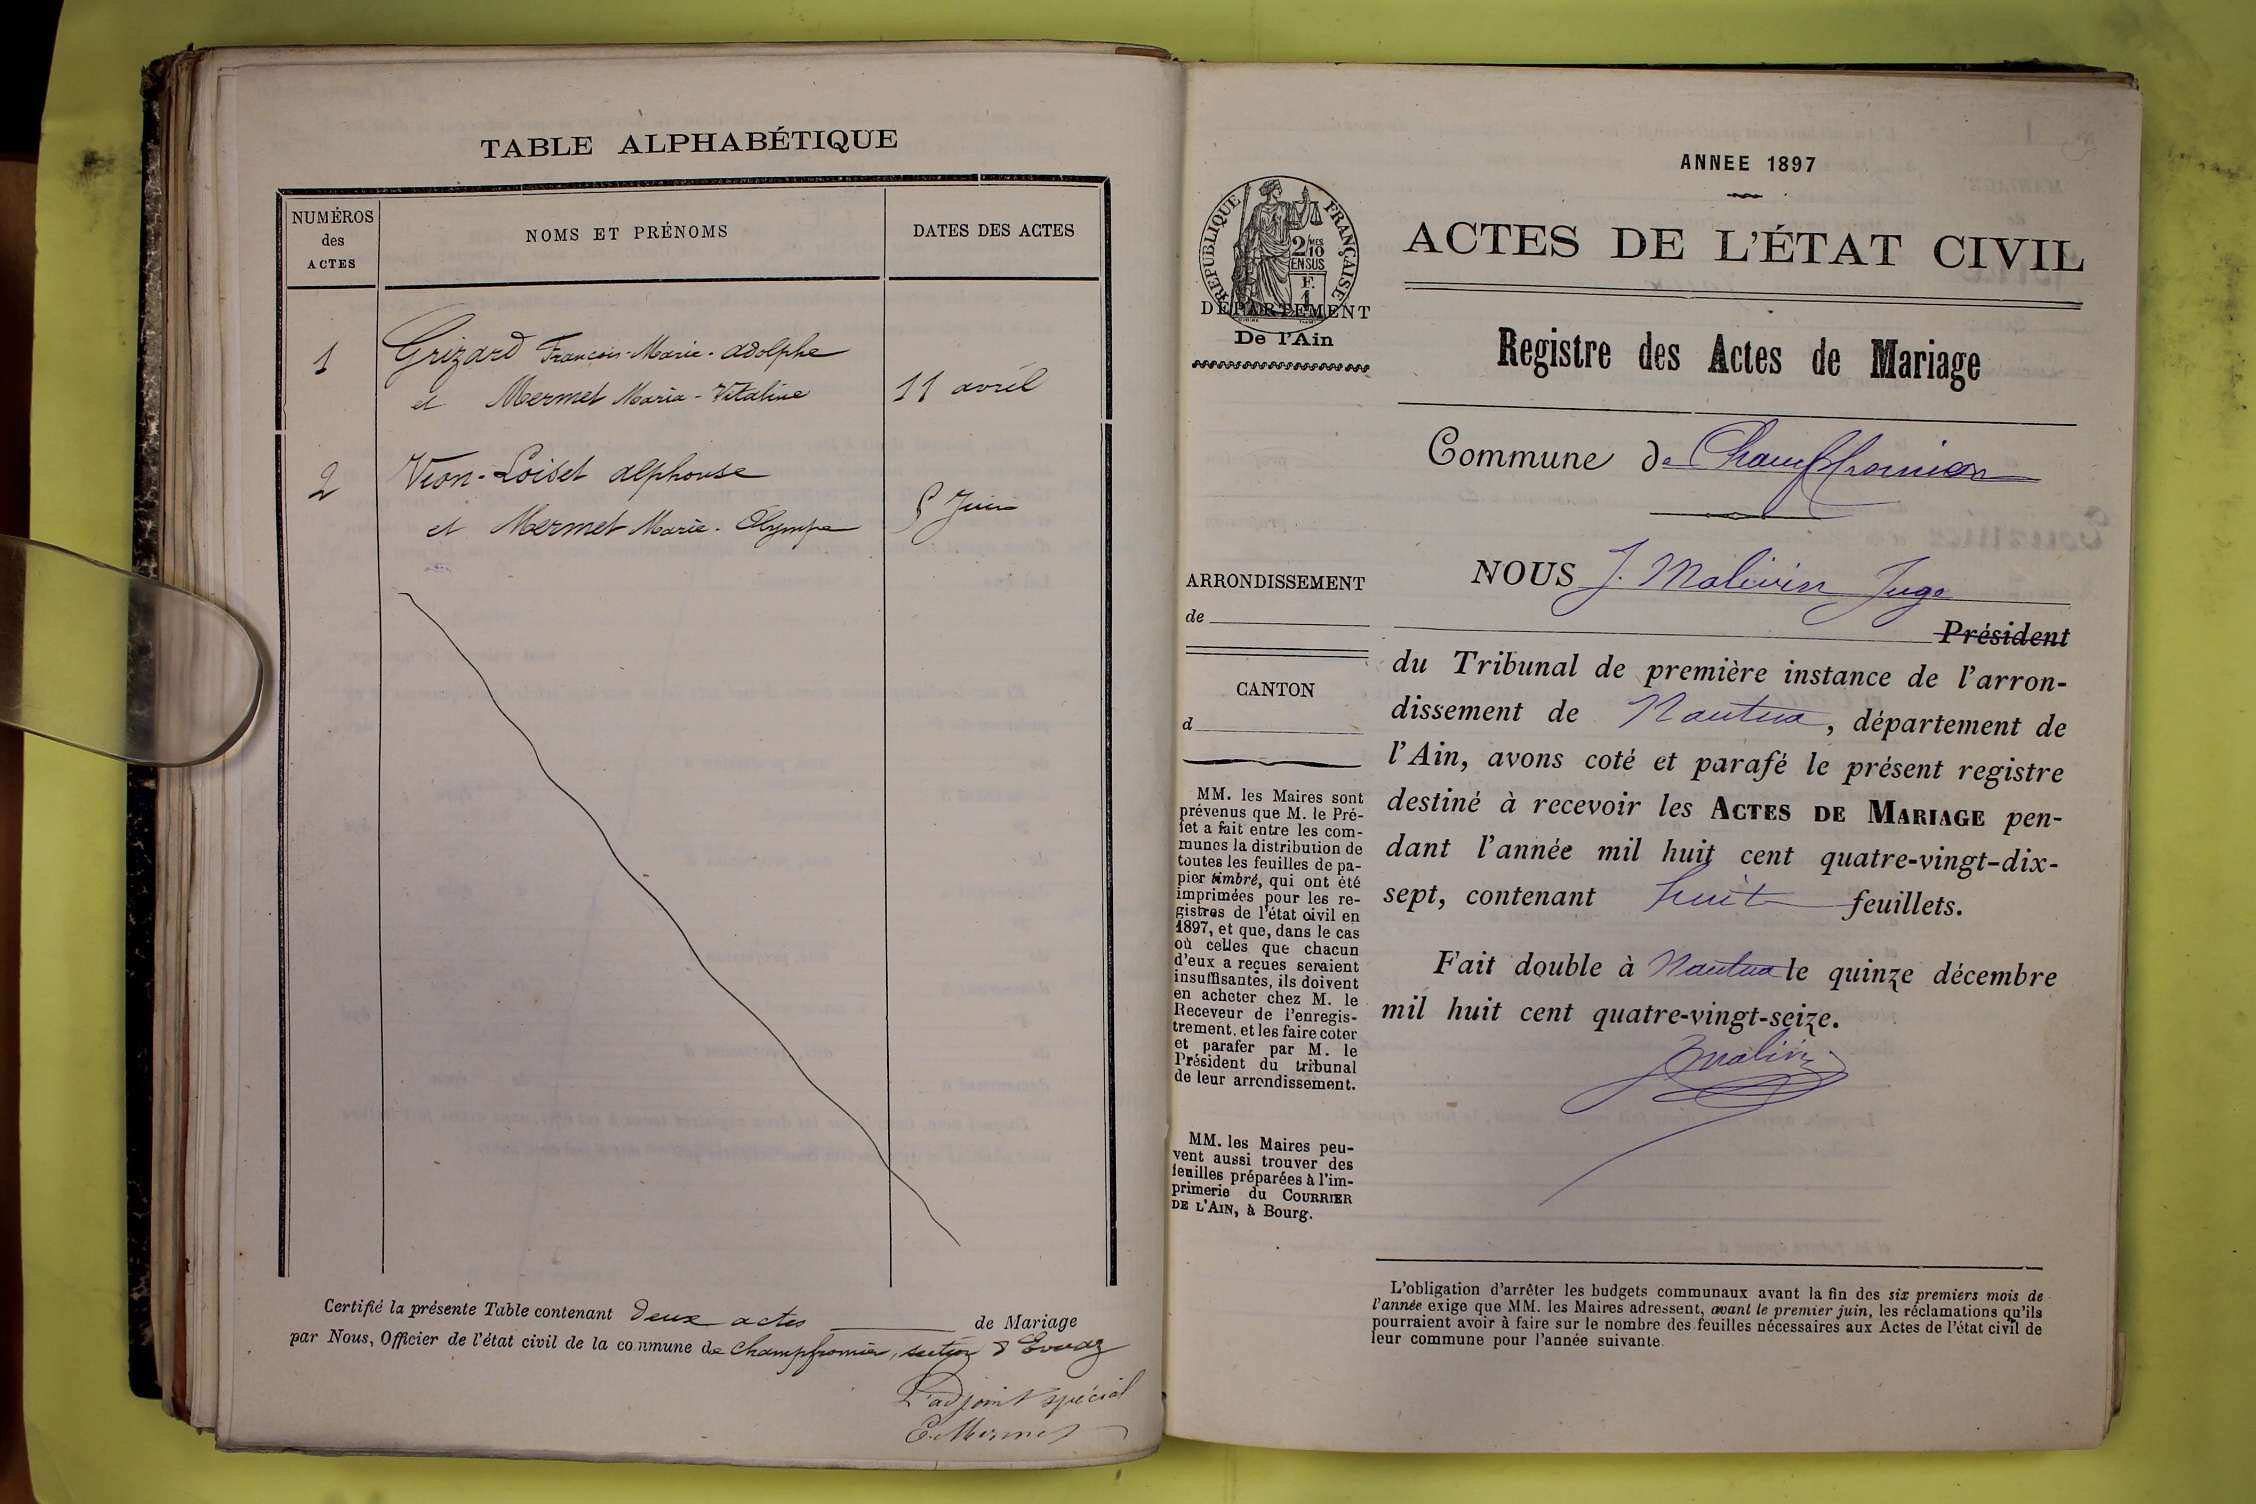 TABLE ALPHABÉTIQUE
NUMÉROS
des
ACTES
NOMS ET PRÉNOMS
DATES DES ACTES
1
Grizard François-Marie-Adolphe
et Mermet Maria-Vitaline
11 avril
2
Vion-Loiset alphonse
et Mermet Marie-Olympe
Juin
Certifié la présente Table contenant Deux actes de Mariage
par Nous, Officier de l'état civil de la commune de Champfromier, section d'Evuaz
L'adjoint spécial
E. Mermet
ANNEE 1897
ACTES DE L'ÉTAT CIVIL
RÉPUBLIQUE FRANÇAISE
2/10 MES
EN SUS
F.
1
DÉPARTEMENT
De l'Ain
Registre des Actes de Mariage
Commune de Champfromier
NOUS J. Malivin Juge
Président
ARRONDISSEMENT
de
CANTON
d
du Tribunal de première instance de l'arron-
dissement de Nantua, département de
l'Ain, avons coté et parafé le présent registre
destiné à recevoir les ACTES DE MARIAGE pen-
dant l'année mil huit cent quatre-vingt-dix-
sept, contenant huit feuillets.
Fait double à Nantua le quinze décembre
mil huit cent quatre-vingt-seize.
JMalivin
MM. les Maires sont
prévenus que M. le Pré-
fet a fait entre les com-
munes la distribution de
toutes les feuilles de pa-
pier timbré, qui ont été
imprimées pour les re-
gistres de l'état civil en
1897, et que, dans le cas
où celles que chacun
d'eux a reçues seraient
insuffisantes, ils doivent
en acheter chez M. le
Receveur de l'enregis-
trement, et les faire coter
et parafer par M. le
Président du tribunal
de leur arrondissement.
MM. les Maires peu-
vent aussi trouver des
feuilles préparées à l'im-
primerie du COURRIER
DE L'AIN, à Bourg.
L'obligation d'arrêter les budgets communaux avant la fin des six premiers mois de
l'année exige que MM. les Maires adressent, avant le premier juin, les réclamations qu'ils
pourraient avoir à faire sur le nombre des feuilles nécessaires aux Actes de l'état civil de
leur commune pour l'année suivante.